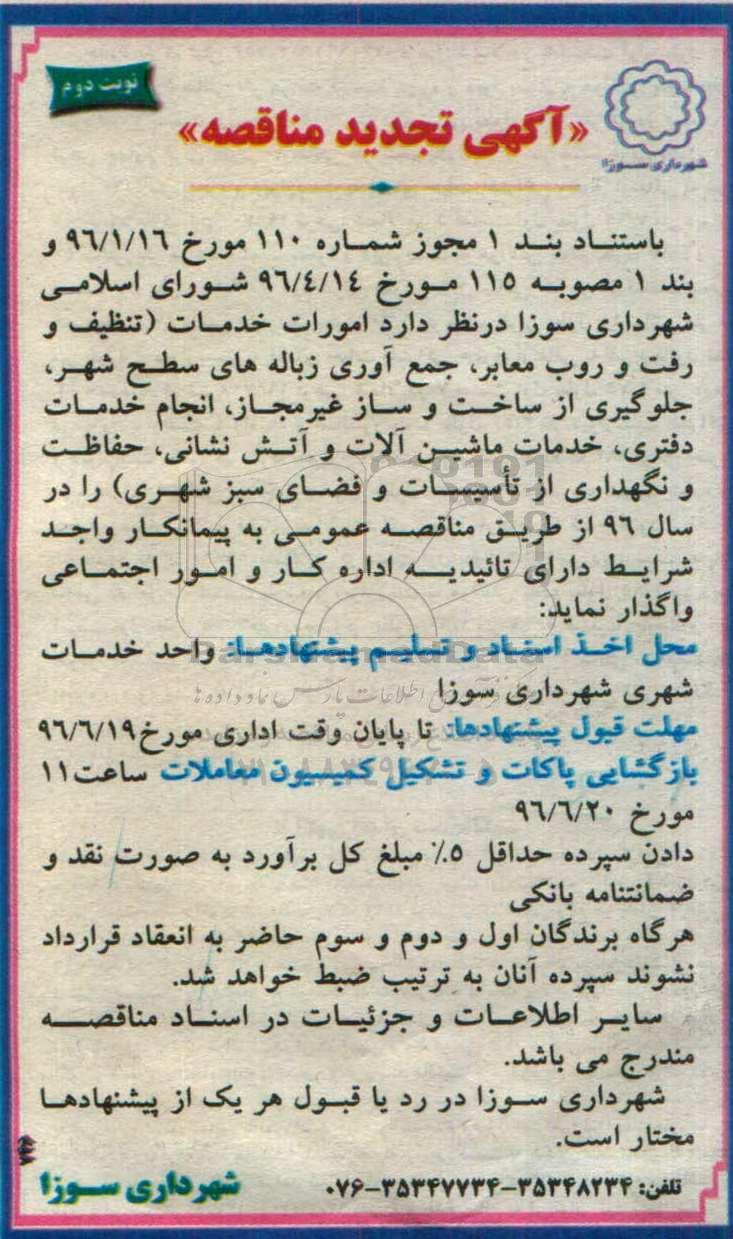 نوبت دوم
شهرداری سوزا
«آگهی تجدید مناقصه»
باستناد بند ۱ مجوز شماره ۱۱۰ مورخ ۹٦/۱/۱٦ و
بند ۱ مصوبه ۱۱٥ مورخ ۹٦/٤/۱٤ شورای اسلامی
شهرداری سوزا درنظر دارد امورات خدمات (تنظیف و
رفت و روب معابر، جمع آوری زباله های سطح شهر،
جلوگیری از ساخت و ساز غیرمجاز، انجام خدمات
دفتری، خدمات ماشین آلات و آتش نشانی، حفاظت
و نگهداری از تأسیسات و فضای سبز شهری) را در
سال ۹٦ از طریق مناقصه عمومی به پیمانکار واجد
شرایط دارای تائیدیه اداره کار و امور اجتماعی
واگذار نماید:
محل اخذ اسناد و تسلیم پیشنهادها: واحد خدمات
شهری شهرداری سوزا
مهلت قبول پیشنهادها: تا پایان وقت اداری مورخ ۹٦/٦/۱۹
بازگشایی پاکات و تشکیل کمیسیون معاملات ساعت ۱۱
مورخ ۹٦/٦/۲۰
دادن سپرده حداقل ٥٪ مبلغ کل برآورد به صورت نقد و
ضمانتنامه بانکی
هرگاه برندگان اول و دوم و سوم حاضر به انعقاد قرارداد
نشوند سپرده آنان به ترتیب ضبط خواهد شد.
سایر اطلاعات و جزئیات در اسناد مناقصه
مندرج می باشد.
شهرداری سوزا در رد یا قبول هر یک از پیشنهادها
مختار است.
تلفن: ۳۵۳۴۸۲۳۴-۳۵۳۴۷۷۳۴-۰۷۶
شهرداری سوزا